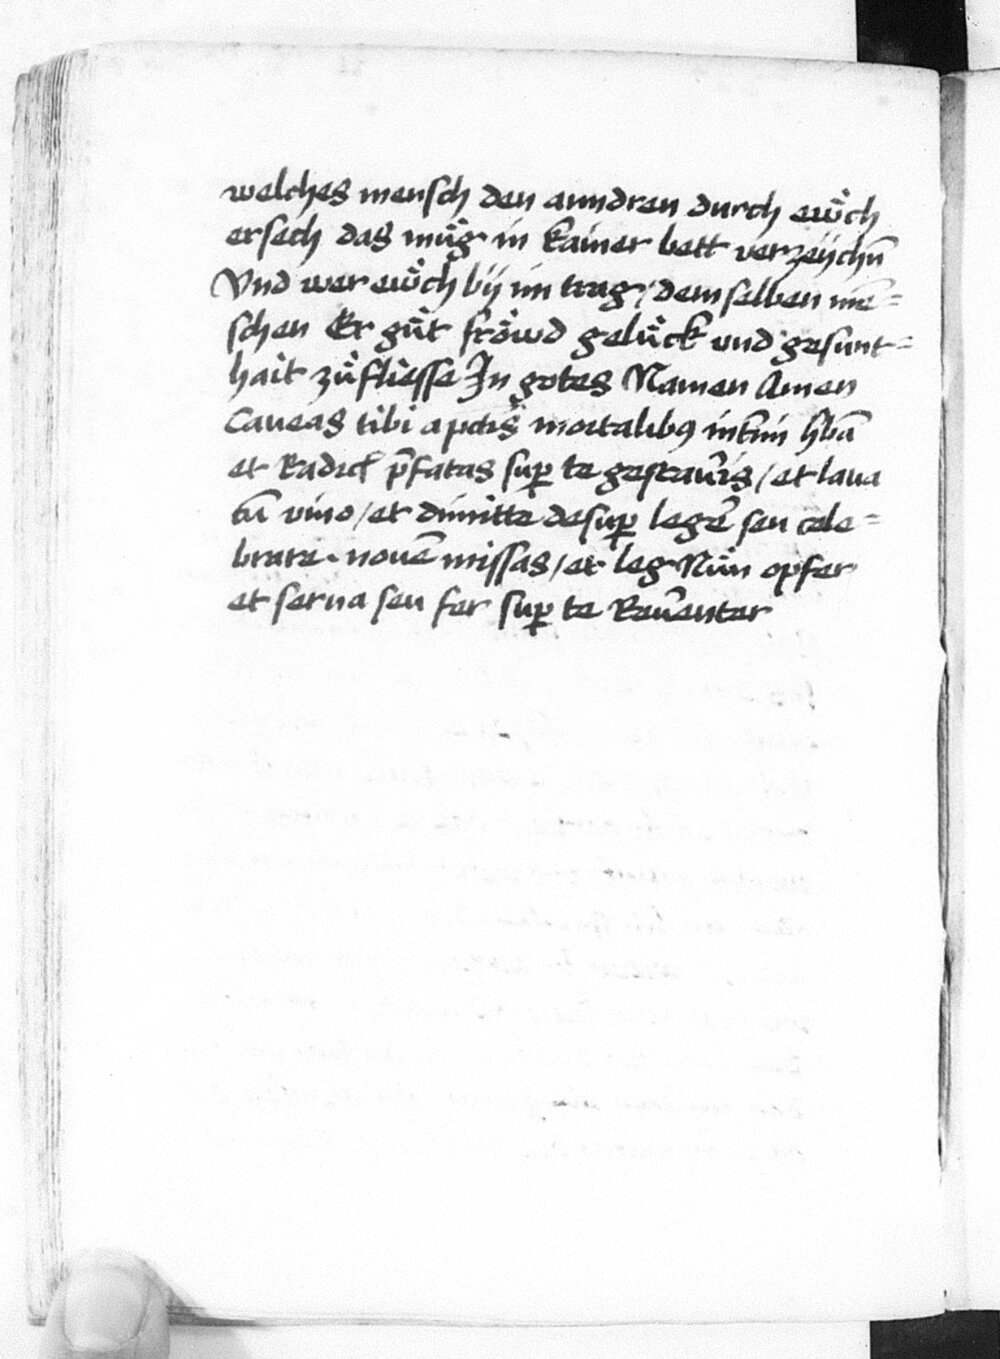 welches mensch den anndren durch ewͤch
ersech das mᷟg in kainer bett verzeijchn̄
Vnd wer ewͤch bij im trag / demselben mē=
schen Er gᷟt frowͤd gelᷟck vnd gesunt=
hait zuͦ fliesse In gotes Namen Amen
Caueas tibi a pctis mortalibꝯ hbā
et Radicꝭ p̄fatas suꝑ te gestaūis / et laua
cū vino / et dimitte desuꝑ legē seu cele=
brare nouē missas / et leg Nün opfer
et serua seu fer suꝑ te Reūenter